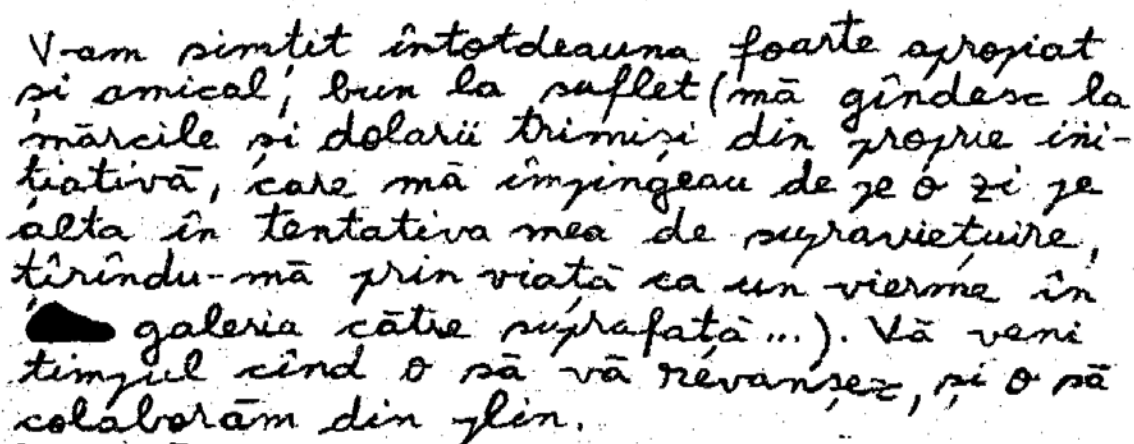 V-am simțit întotdeauna foarte apropiat
și amical, bun la suflet (mă gîndesc la
mărcile și dolarii trimiși din proprie ini-
țiativă, care mă împingeau de pe o zi pe
alta în tentativa mea de supraviețuire,
țîrîndu-mă prin viață ca un vierme în
galeria către suprafață...). Vă veni
timpul cînd o să vă revanșez, și o să
colaborăm din plin.